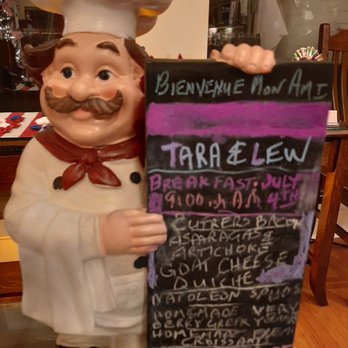 BIENVENUE MON AMI
TARA & LEW
BREAKFAST JULY
9:00 A.M. 4TH
BACON
ASPARAGAS &
ARTICHOKE
GOAT CHEESE
QUICHE
NAPOLEON
HOMEMADE VERY
BERRY GREEK
HOMEMADE
CROISSANT